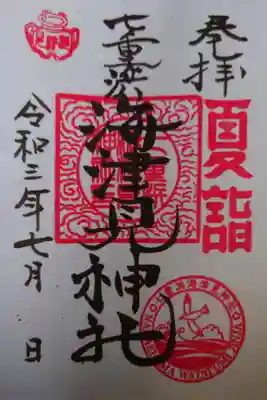 奉拝
夏詣
七重浜
海津見神社
令和三年七月 日